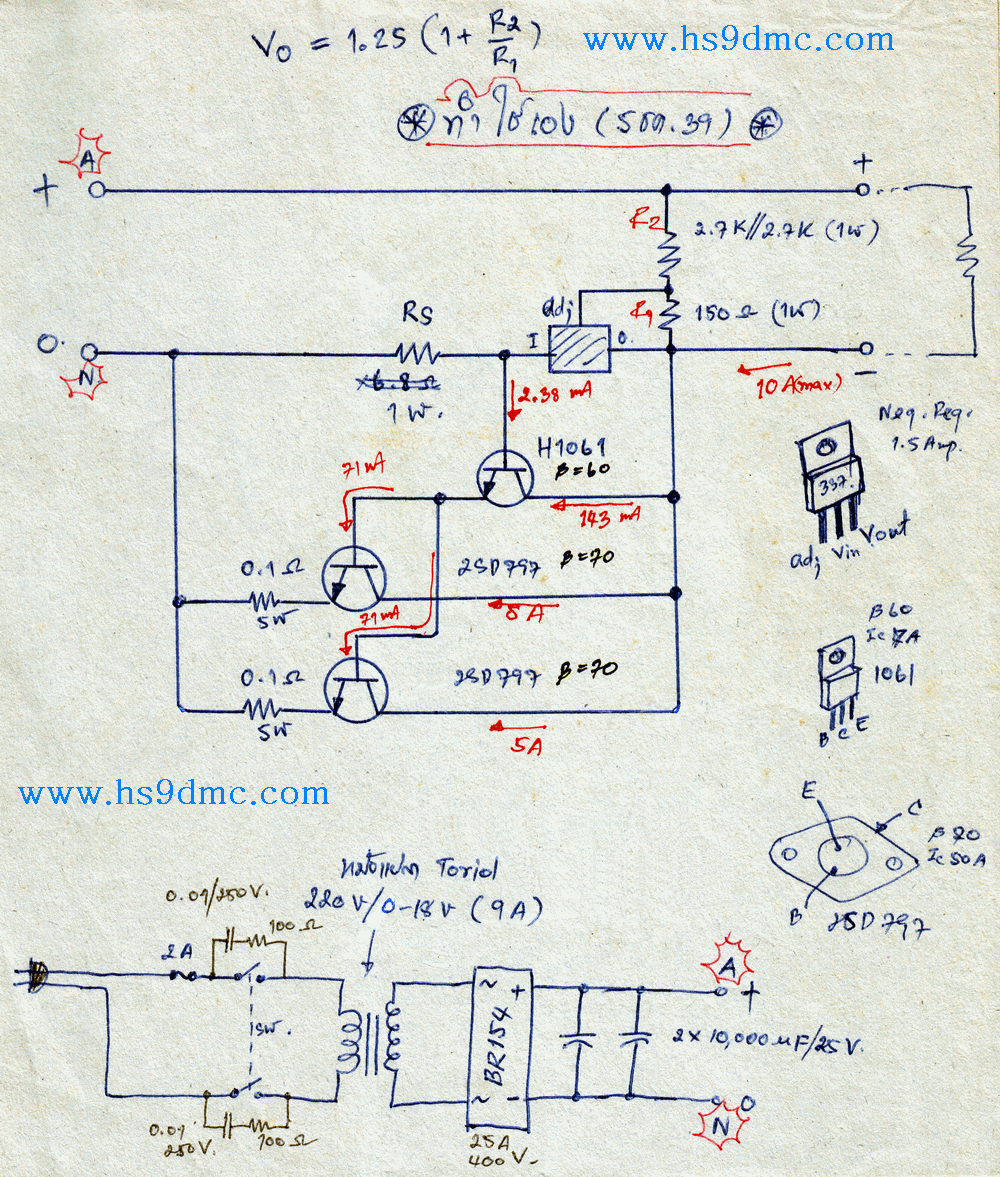 Vo = 1.25 (1 + R2/R1)
www.hs9dmc.com
ทำ ใช้เอง (5 ตค. 39)
A
+
+
R2
2.7K//2.7K (1W)
adj
R1
150 Ω (1W)
Rs
I
O.
O.
N
6.8 Ω
1 W.
2.38 mA
10 A(max)
−
Neg. Reg.
1.5 Amp.
337
adj Vin Vout
H1061
β=60
71 mA
143 mA
0.1 Ω
5W
2SD797 β=70
5 A
71 mA
0.1 Ω
5W
2SD797 β=70
5A
β60
Ic 7A
1061
B C E
www.hs9dmc.com
E
C
β 70
Ic 50A
B
2SD797
หม้อแปลง Toriod
220V/0-18V (9A)
0.01/250V.
100 Ω
2A
SW.
~ +
BR154
~ −
A
+
2 x 10,000 µF/25V.
N
O
0.01
250V.
100 Ω
25A
400V.